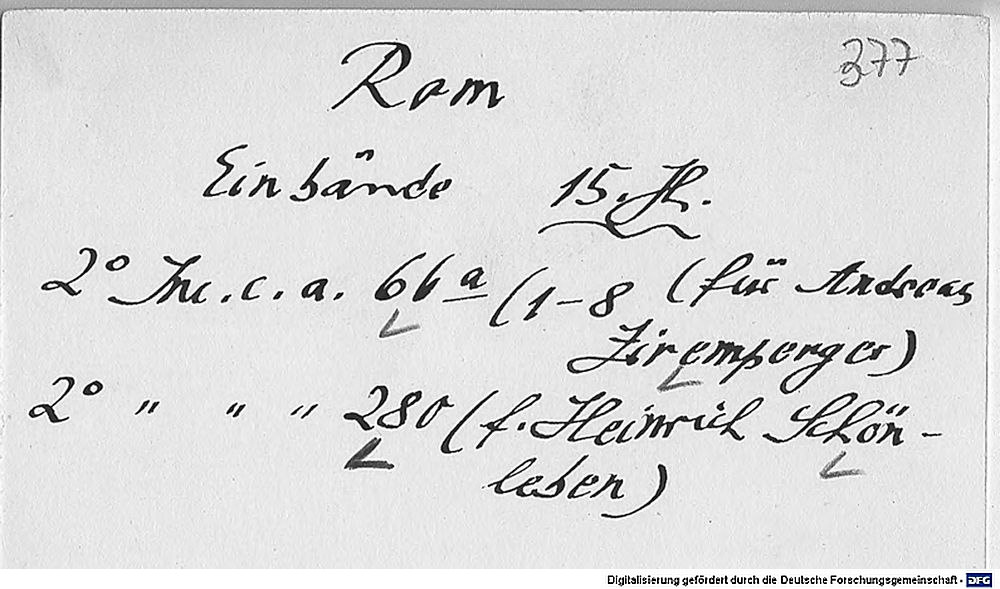 377
Rom
Einbände 15. Jh.
2° Inc. c. a. 66 a (1-8 (für Andreas
Ziremperger)
2° " " " 280 (f. Heinrich Schön-
leben)
Digitalisierung gefördert durch die Deutsche Forschungsgemeinschaft - DFG